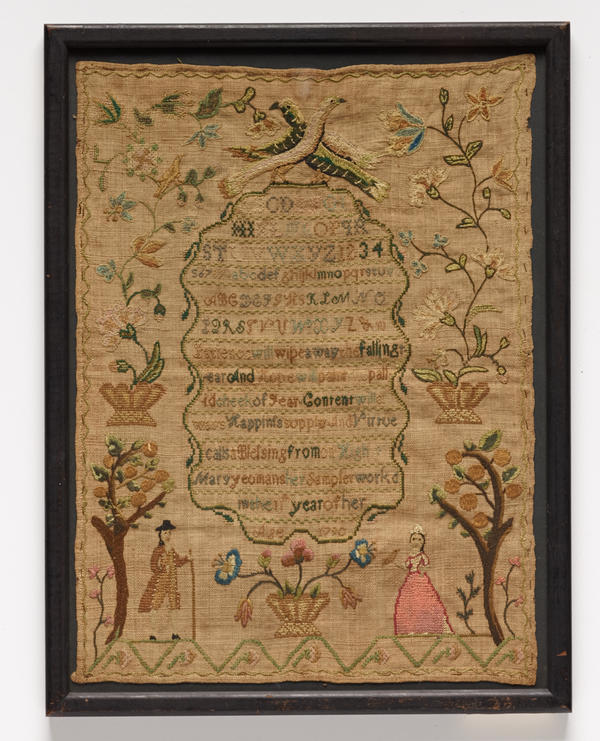 CD
OPQR
STUVWXYZ1234
567 abcdefghijklmnopqrstuv
ABCDEFGHIKLMNO
PQRSTVUWXYZ &
Patience will wipe away the falling
tear And Hope will paint pall
id cheek of Fear Content will
Happinfs supply And Virtue
calls a Blefsing from on High
Mary yeomans her Sampler work d
in the 11 year of her